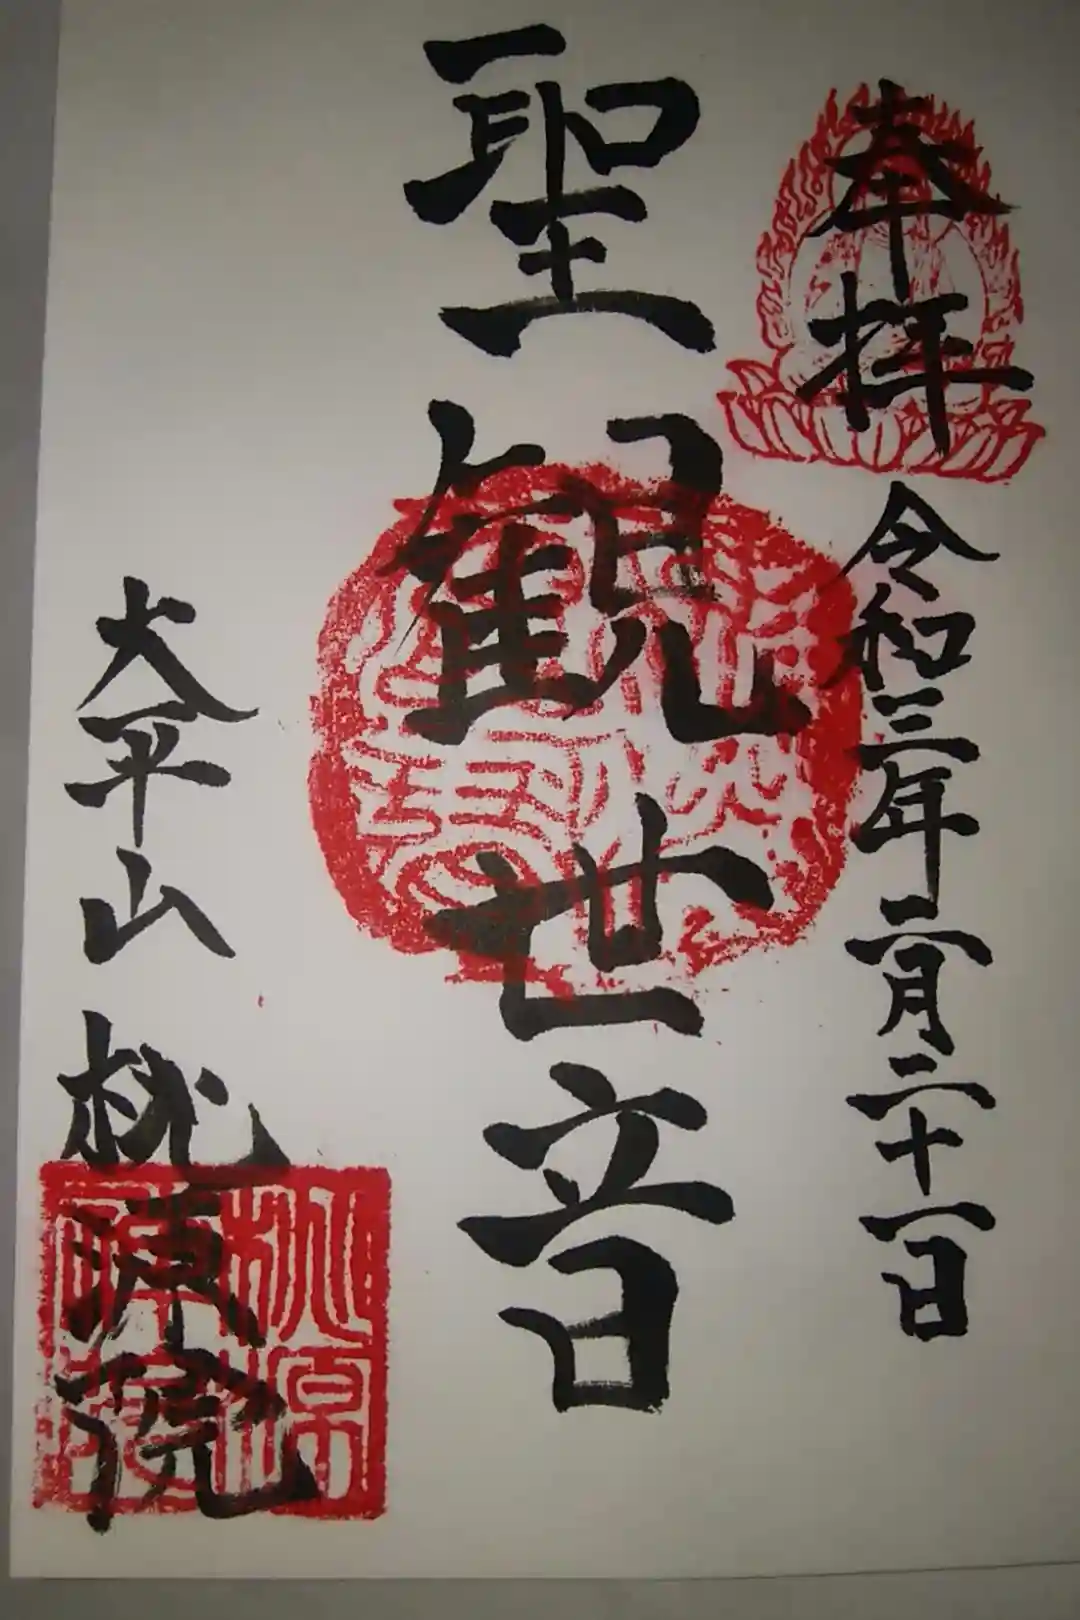 奉拝
令和三年二月二十一日
聖観世音
大平山
桃源院